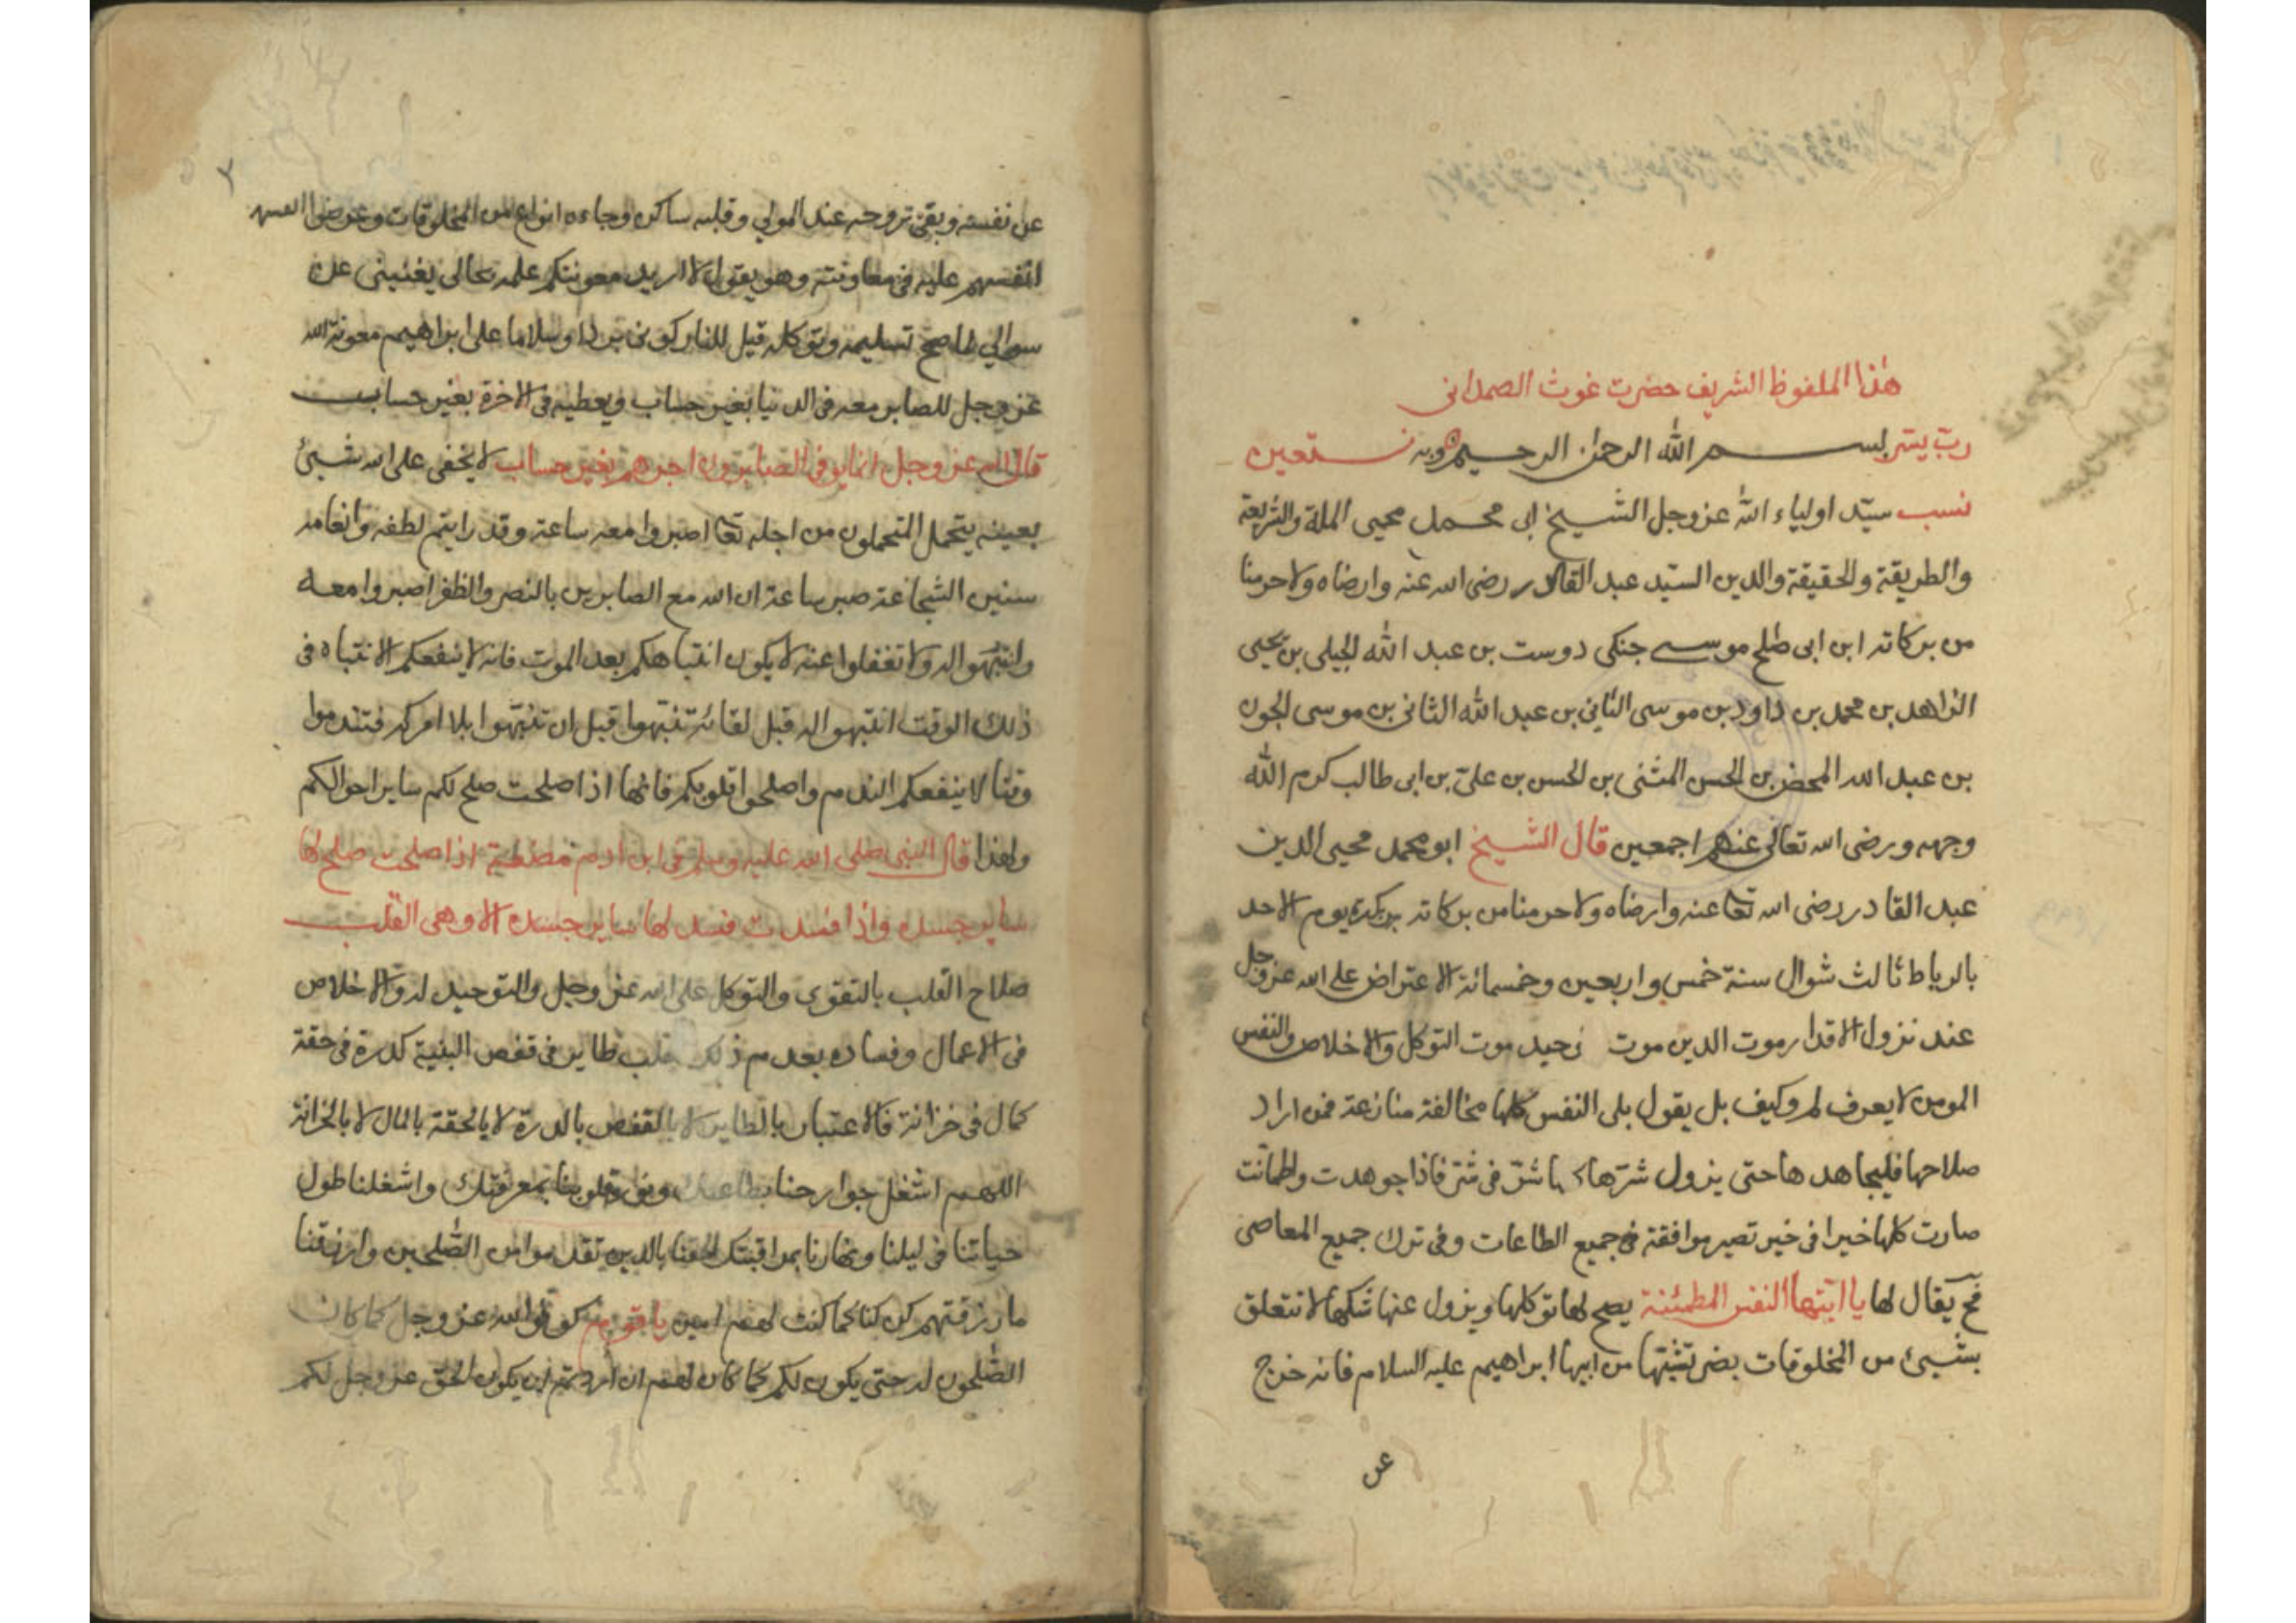 هذا الملفوظ الشريف حضرت غوث الصمدانى
رب يسر بسم الله الرحمن الرحيم وبه نستعين
نسب سيّد اولياء الله عز وجل الشيخ ابى محمد محيى الملة والشريعة
والطريقة والحقيقة والدين السيّد عبد القادر رضى الله عنه وارضاه ولاحرمنا
من بركاته ابن ابى صلح موسى جنكى دوست بن عبد الله الجيلى بن يحيى
الزاهد بن محمد بن داود بن موسى الثانى بن عبد الله الثانى بن موسى الجون
بن عبد الله المحض بن الحسن المثنى بن الحسن بن علىّ بن ابى طالب كرم الله
وجهه ورضى الله تعالى عنهم اجمعين قال الشيخ ابو محمد محيى الدين
عبد القادر رضى الله تعا عنه وارضاه ولاحرمنا من بركاته بكرة يوم الاحد
بالرباط ثالث شوال سنة خمس واربعين وخمسمائة الاعتراض على الله عز وجل
عند نزول الاقدار موت الدين موت حيد موت التوكل والاخلاص والنفس
المومن لا يعرف لم وكيف بل يقول بلى النفس كلها مخالفة منازعة فمن اراد
صلاحها فليجاهدها حتى يزول شرّها شرّ فى شرّ فاذا جوهدت واطمانّت
صارت كلها خيرا فى خير تصير موافقة فى جميع الطاعات وفى ترك جميع المعاصى
فح يقال لها يا ايتها النفس المطمئنة يصح لها توكلها ويزول عنها شكها لا تتعلق
بشيئ من المخلوقات من ابيها ابراهيم عليه السلام فانه خرج
عن
٢
عن نفسه وبقى عند المولى وقلبه ساكن وجاءه انواع من المخلوقات وعرضوا
انفسهم عليه فى معاونته وهو يقول لا اريد معونتكم علمه بحالى يغنينى عن
سوالى لما صح تسليمه وتوكله قيل للنار كونى بردا وسلاما على ابراهيم معونة الله
عز وجل للصابر معه فى الدنيا بغير حساب ويعطيه فى الاخرة بغير حساب
قال الله عز وجل انما يوفى الصابرون اجرهم بغير حساب لا يخفى على الله شيئ
بعينه يتحمل المتحملون من اجله تعا اصبروا معه ساعة وقد رايتم لطفه وانعامه
سنين الشجاعة صبر ساعة ان الله مع الصابرين بالنصر والظفر اصبروا معه
وانتبهوا له ولا تغفلوا عنه لا يكون انتباهكم بعد الموت فانه لا ينفعكم الانتباه فى
ذلك الوقت انتبهوا له قبل لقائه تنبهوا قبل ان تنبهوا بلا امركم فتندموا
وقتا لا ينفعكم الندم واصلحوا قلوبكم فانها اذا صلحت صلح لكم ساير احوالكم
ولهذا قال النبى صلى الله عليه وسلم فى ابن ادم مضغة اذا صلحت صلح لها
ساير جسده واذا فسدت فسد لها ساير جسده الا وهى القلب
صلاح القلب بالتقوى والتوكل على الله عز وجل والتوحيد له والاخلاص
فى الاعمال وفساده بعدم ذلك قلب طاير فى قفص البنية كدرة فى حقة
كمال فى خزانة فالاعتبار بالطاير لا بالقفص بالدرة لا بالحقة بالمال لا بالخزانة
اللهم اشغل جوارحنا بطاعتك ونور قلوبنا بمعرفتك واشغلنا طول
حياتنا فى ليلنا ونهارنا بمراقبتك الحقنا بالذين تقدموا من الصّلحين وارزقنا
ما رزقتهم كن لنا كما كنت لهم امين يا قوم كونوا لله عز وجل كما كان
الصّلحون له حتى يكون لكم كما كان لهم ان اردتم ان يكون الحق عز وجل لكم